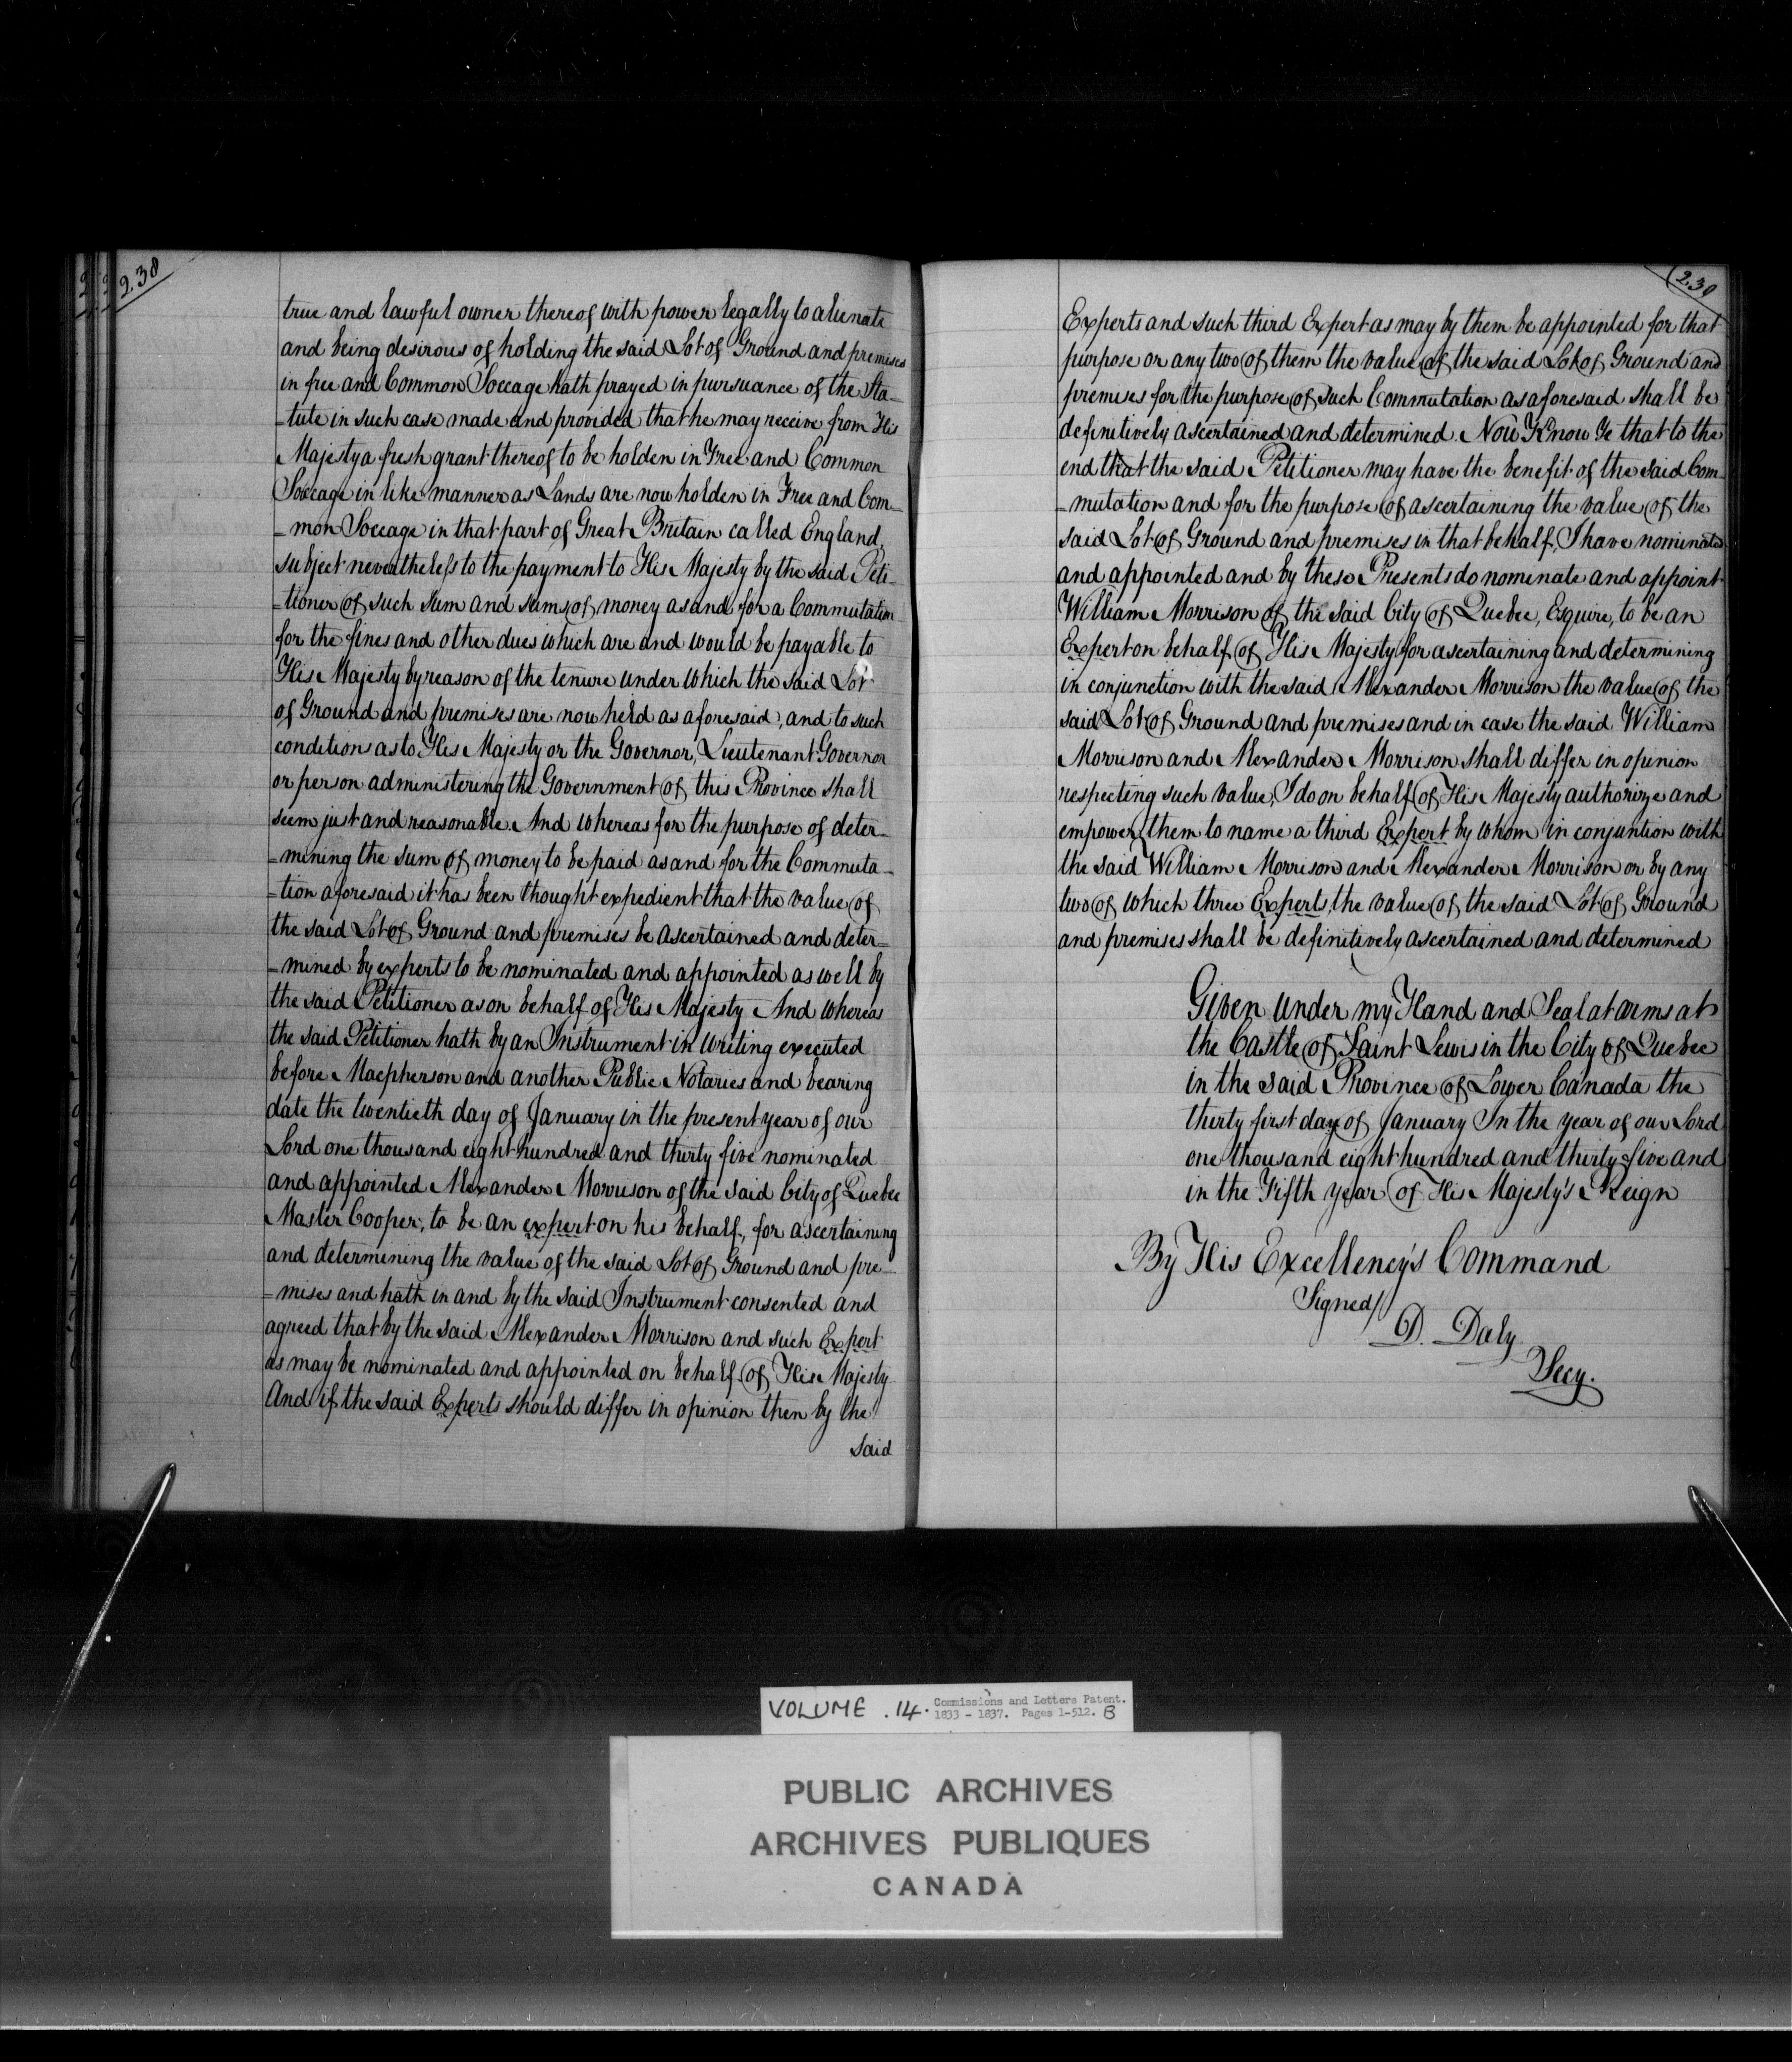 2.30
true and lawful owner thereof with power legally to alienate
and being desirous of holding the said Lot of Ground and premises
in free and Common Soccage hath prayed in pursuance of the Sta-
-tute in such case made and provided that he may receive from His
Majesty a fresh grant thereof to be holden in Free and Common
Soccage in like manner as Lands are now holden in Free and Com-
-mon Soccage in that part of Great Britain called England,
subject nevertheless to the payment to His Majesty by the said Peti-
-tioner of such sum and sums of money as and for a Commutation
for the fines and other dues which are and would be payable to
His Majesty by reason of the tenure under which the said Lot
of Ground and premises are now held as aforesaid, and to such
condition as to His Majesty or the Governor, Lieutenant Governor
or person administering the Government of this Province shall
seem just and reasonable. And whereas for the purpose of deter-
-mining the sum of money to be paid as and for the Commuta-
-tion aforesaid it has been thought expedient that the value of
the said Lot of Ground and premises be ascertained and deter-
-mined by experts to be nominated and appointed as well by
the said Petitioner as on behalf of His Majesty And whereas
the said Petitioner hath by an Instrument in writing executed
before Macpherson and another Public Notaries and bearing
date the twentieth day of January in the present year of our
Lord one thousand eight hundred and thirty five nominated
and appointed Alexander Morrison of the said City of Quebec
Master Cooper, to be an expert on his behalf, for ascertaining
and determining the value of the said Lot of Ground and pre-
-mises and hath in and by the said Instrument consented and
agreed that by the said Alexander Morrison and such Expert
as may be nominated and appointed on behalf of His Majesty
And if the said Experts should differ in opinion then by the
said
2.30
Experts and such third Expert as may by them be appointed for that
purpose or any two of them the value of the said Lot of Ground and
premises for the purpose of such Commutation as aforesaid shall be
definitively ascertained and determined. Now Know Ye that to the
end that the said Petitioner may have the benefit of the said Com-
-mutation and for the purpose of ascertaining the value of the
said Lot of Ground and premises in that behalf, I have nominated
and appointed and by these Presents do nominate and appoint
William Morrison of the said City of Quebec, Esquire, to be an
Expert on behalf of His Majesty for ascertaining and determining
in conjunction with the said Alexander Morrison the value of the
said Lot of Ground and premises and in case the said William
Morrison and Alexander Morrison shall differ in opinion
respecting such value, I do on behalf of His Majesty authorize and
empower them to name a third Expert by whom in conjuntion with
the said William Morrison and Alexander Morrison or by any
two of which three Experts, the value of the said Lot of Ground
and premises shall be definitively ascertained and determined
Given under my Hand and Seal at arms at
the Castle of Saint Lewis in the City of Quebec
in the said Province of Lower Canada the
thirty first day of January In the year of our Lord
one thousand eight hundred and thirty five and
in the Fifth year of His Majesty's Reign
By His Excellency's Command
Signed/
D. Daly
Secy.
VOLUME . 14. Commissions and Letters Patent.
1833 - 1837. Pages 1-512. B
PUBLIC ARCHIVES
ARCHIVES PUBLIQUES
CANADA